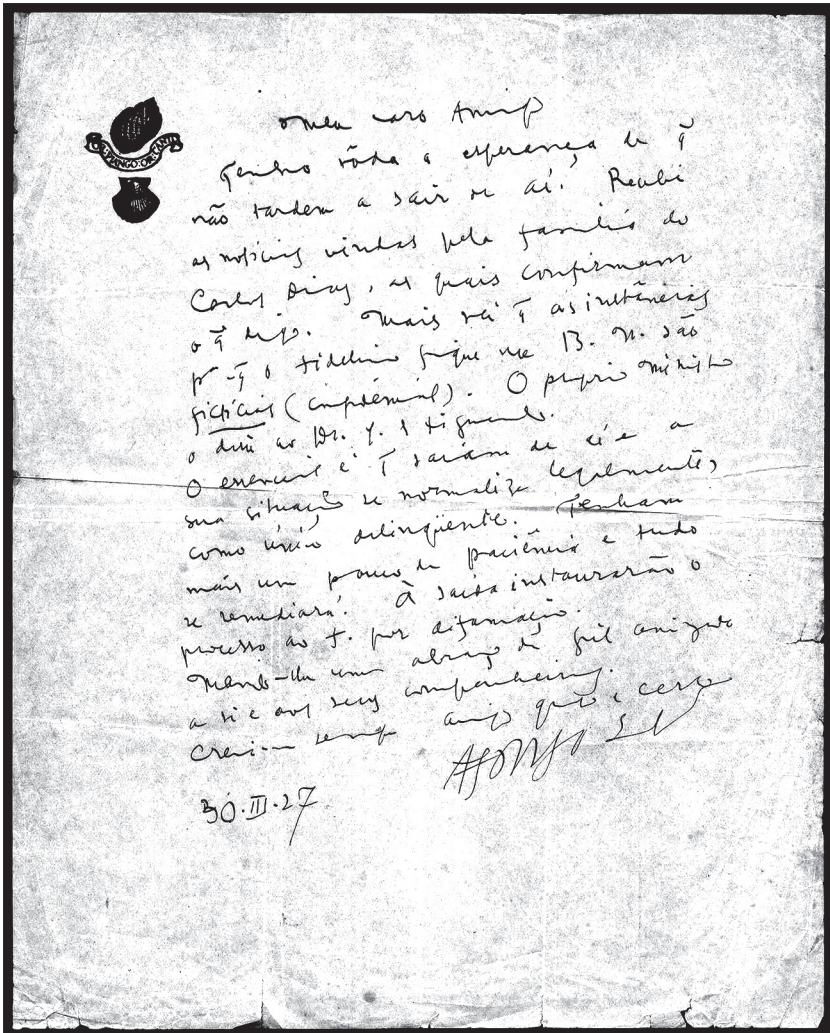 FRANGO OU PARTO
Meu caro Amigo
Tenho tôda a esperança de q̃
não tardem a sair de aí. Recebi
as notícias vindas pela família do
Carlos Dias, as quais confirmam
o q̃ digo. Mais sei q̃ as instâncias
pª q̃ o Fidelino fique na B. N. são
fictícias (confidencial). O próprio ministro
o disse ao Dr. J. de Figueiredo.
O essencial é q̃ saiam de aí e a
sua situação se normalize legalmente,
como delinqüente. Tenham
mais um pouco de paciência e tudo
se remediará. À saída instaurarão o
processo ao F. por difamação.
Mando-lhe um abraço de fiel amizade
a si e aos seus companheiros.
Creia-me sempre amigo grato e certo
30.III.27